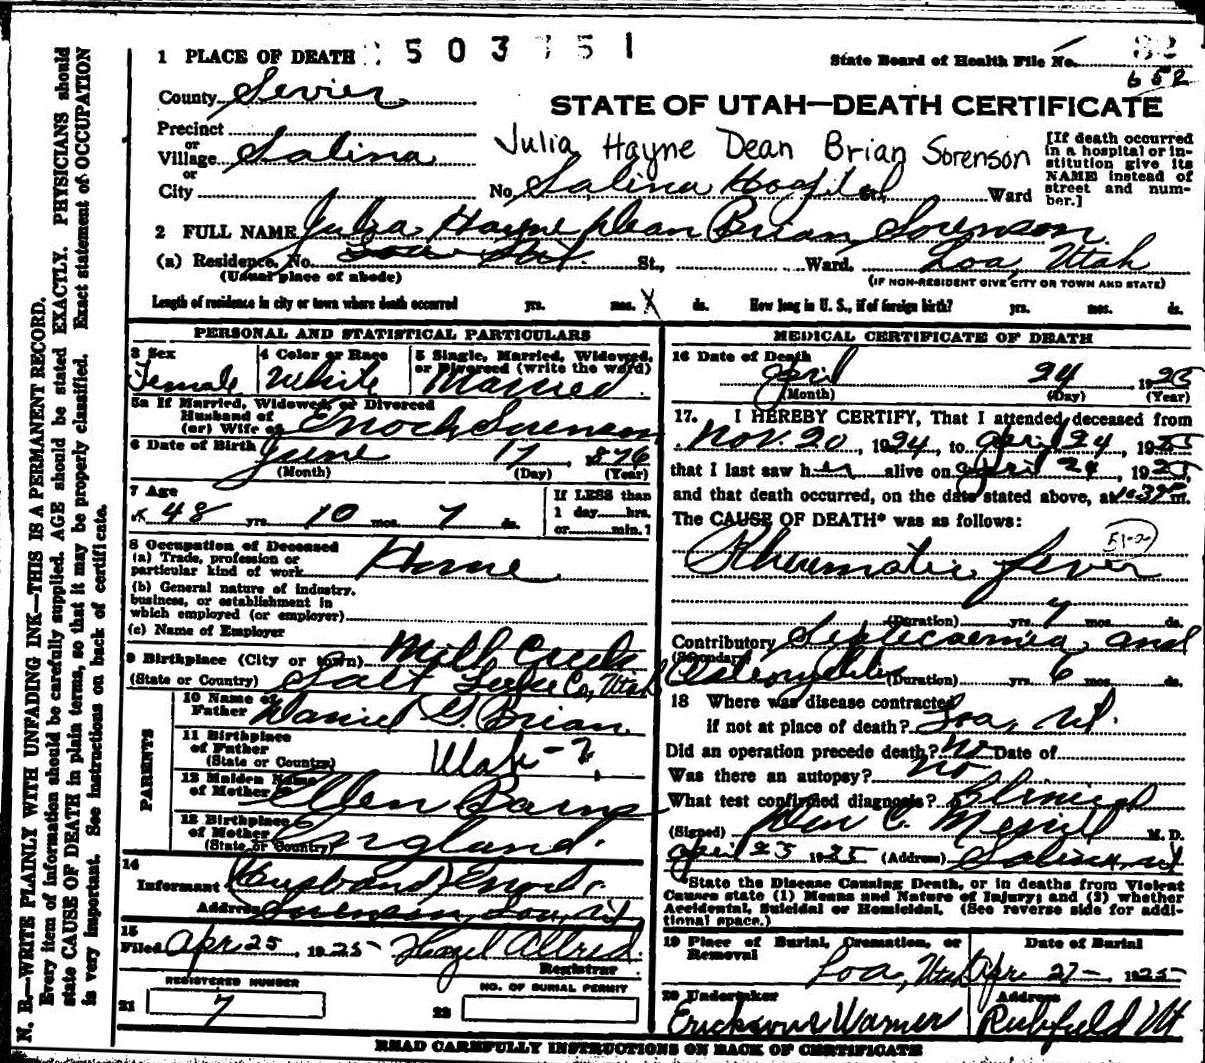 1 PLACE OF DEATH 503751
State Board of Health File No. 32
652
County Sevier
STATE OF UTAH—DEATH CERTIFICATE
Precinct
or
Village Salina
or
City
Julia Hayne Dean Brian Sorenson
[If death occurred in a hospital or institution give its NAME instead of street and number.]
No. Salina Hospital St., Ward
2 FULL NAME Julia Hayne Dean Brian Sorenson
(a) Residence. No. St., Ward. Loa, Utah
(Usual place of abode) (IF NON-RESIDENT GIVE CITY OR TOWN AND STATE)
Length of residence in city or town where death occurred yrs. mos. X ds. How long in U. S., if of foreign birth? yrs. mos. ds.
PERSONAL AND STATISTICAL PARTICULARS
3 Sex Female
4 Color or Race White
5 Single, Married, Widowed, or Divorced (write the word) Married
5a If Married, Widowed, or Divorced
Husband of
(or) Wife of Enoch Sorenson
6 Date of Birth June 17, 1876
(Month) (Day) (Year)
7 Age
48 yrs. 10 mos. 7 ds.
If LESS than
1 day......hrs.
or......min.?
8 Occupation of Deceased
(a) Trade, profession or
particular kind of work Home
(b) General nature of industry,
business, or establishment in
which employed (or employer)
(c) Name of Employer
9 Birthplace (City or town) Mill Creek
(State or Country) Salt Lake Co., Utah
PARENTS
10 Name of
Father Daniel G. Brian
11 Birthplace
of Father
(State or Country) Utah - ?
12 Maiden Name
of Mother Ellen
13 Birthplace
of Mother
(State or Country) England.
14
Informant (Husband) Enoch
Address Sorenson, Loa, Ut
15
Filed Apr 25, 1925 Hazel Allred
Registrar
REGISTERED NUMBER
21 7
NO. OF BURIAL PERMIT
22
MEDICAL CERTIFICATE OF DEATH
16 Date of Death
April 24, 1925
(Month) (Day) (Year)
17. I HEREBY CERTIFY, That I attended deceased from
Nov. 20, 1924, to April 24, 1925
that I last saw her alive on April 24, 1925,
and that death occurred, on the date stated above, at m.
The CAUSE OF DEATH* was as follows:
51-2
Rheumatic fever
(Duration) yrs. mos. ds.
Contributory Septicaemia and
(Secondary) (Duration) yrs. 6 mos. ds.
18 Where was disease contracted
if not at place of death? Loa, Ut.
Did an operation precede death? No Date of
Was there an autopsy? No
What test confirmed diagnosis? Clinical
(Signed) C. Merrill M. D.
April 25 1925 (Address) Salina, Ut
*State the Disease Causing Death, or in deaths from Violent
Causes state (1) Means and Nature of Injury; and (2) whether
Accidental, Suicidal or Homicidal. (See reverse side for additional space.)
19 Place of Burial, Cremation, or Removal
Loa, Utah
Date of Burial
Apr 27- 1925
20 Undertaker
Warner
Address
Richfield Ut
READ CAREFULLY INSTRUCTIONS ON BACK OF CERTIFICATE
N. B.—WRITE PLAINLY WITH UNFADING INK—THIS IS A PERMANENT RECORD.
Every item of information should be carefully supplied. AGE should be stated EXACTLY. PHYSICIANS should
state CAUSE OF DEATH in plain terms, so that it may be properly classified. Exact statement of OCCUPATION
is very important. See instructions on back of certificate.